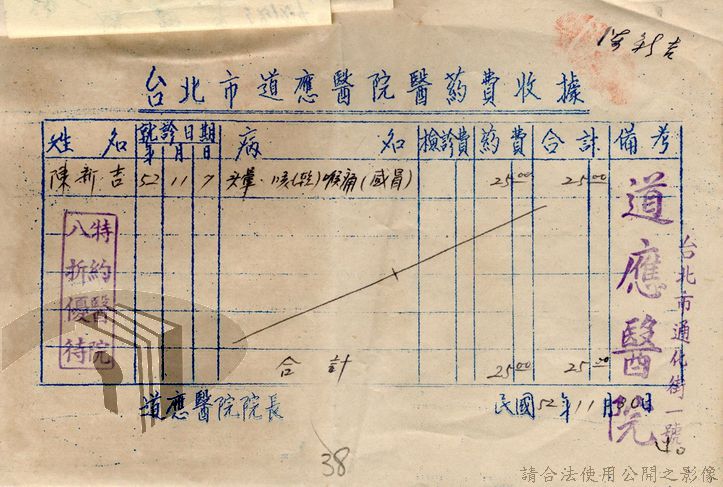 陳新吉
台北市道應醫院醫药費收據
姓名 就診日期 年 月 日 病名 檢診費 药費 合計 備考
陳新吉 52 11 7 頭暈 咳 喉痛(感冒) 25.00 25.00
特約醫院
八折優待
道應醫院
台北市通化街一號
合計 25.00 25.00
道應醫院院長
民國52年11月30日
38
請合法使用公開之影像